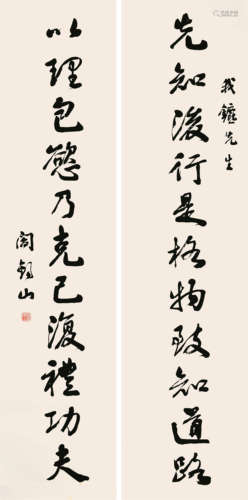 我鑵先生
先知後行是格物致知道路
以理包慾乃克己復禮功夫
阎錫山